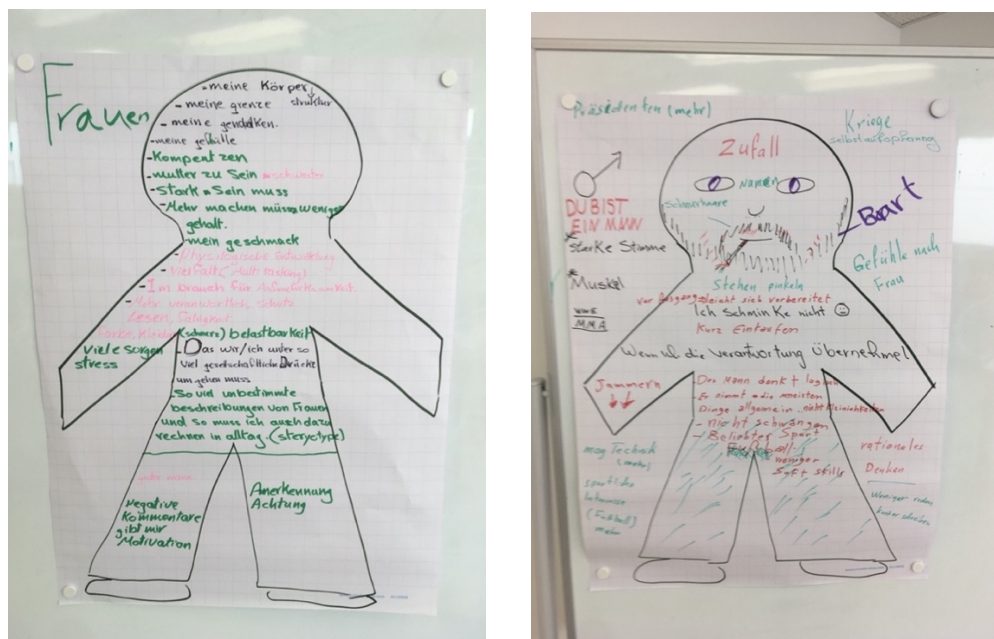 Frauen
-meine Körper
struktur
-meine grenze
-meine gedanken.
-meine gefühle
-Kompentzen
-mutter zu Sein schwester
-Stark Sein muss
-Mehr machen müssen weniger
gehalt.
-mein geschmack
-Physiologische Entwicklung
-Vielfalt (Multitasking)
-Im brauch für Aufmerksamkeit
-Mehr verantwortlich
Lesen,
(schmerz) belastbarkeit
Viele sorgen
stress
-Das wir/ich unter so
viel gesellschaftliche Drücke
um gehen muss
-So viel unbestimmte
beschreibungen von Frauen
und so muss ich auch dazu
rechnen in alltag. (steryotype)
Negative
Kommentare
gibt mir
Motivation
Anerkennung
Achtung
Präsidenten (mehr)
Kriege
selbstaufopferung
Zufall
namen
Schnurhaare
DU BIST
EIN MANN
Bart
Starke Stimme
Muskel
MMA
Gefühle nach
Frau
Stehen pinkeln
vor Ausgang leicht sich vorbereitet
Ich SchminKe nicht
Kurz Einkaufen
Wenn ich die verantwortung übernehme!
Jammern
-Der Mann denkt
-Er nimmt die meisten
Dinge allgemein nicht Kleinichkeiten
-nicht schwanger
-Beliebter Sport
Fußball
weniger
Soft skills
mag Technik
(mehr)
sportliche
Interesse
(Fussball)
mehr
rationales
Denken
Weniger reden